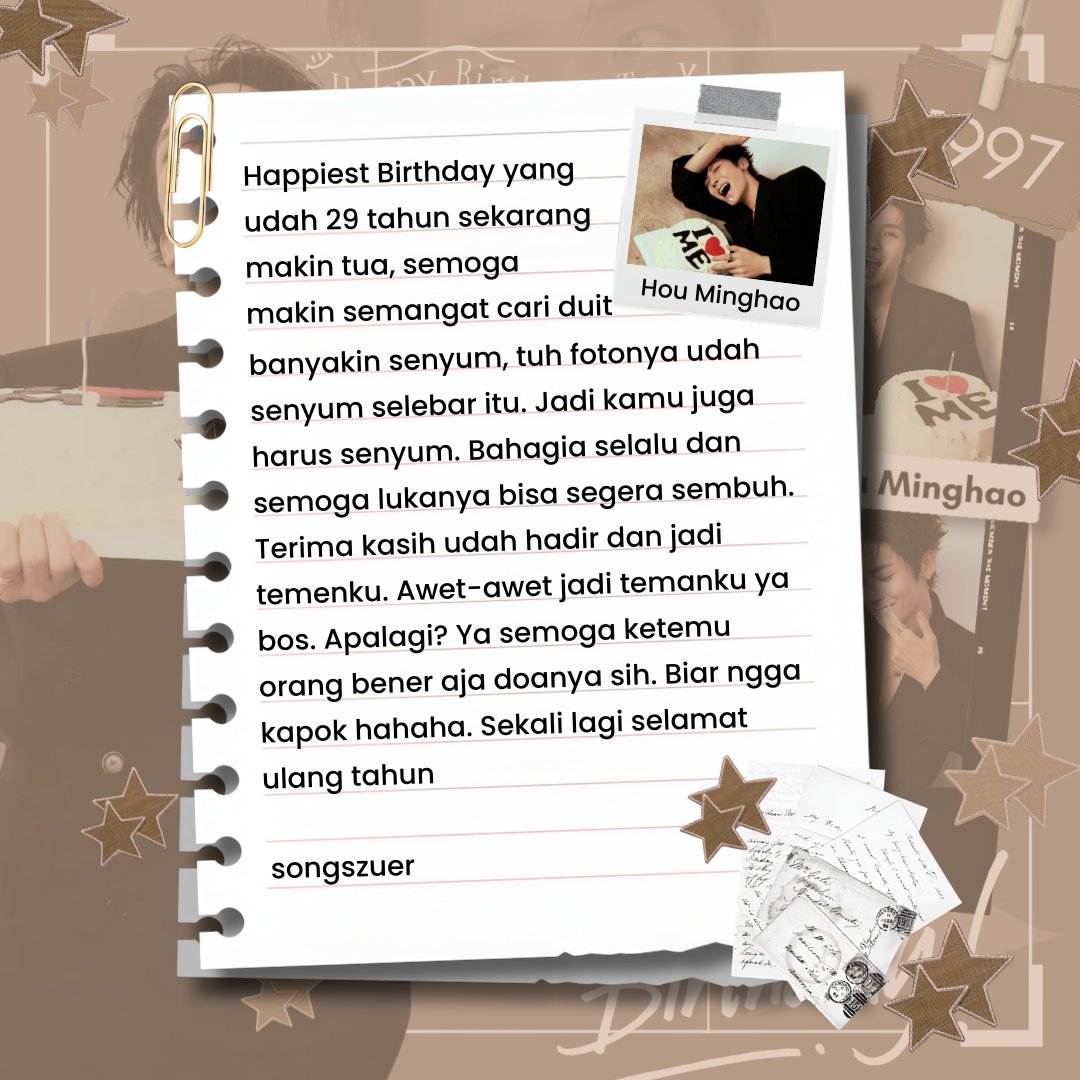 Happy Birthday To Y
1997
Happiest Birthday yang
udah 29 tahun sekarang
makin tua, semoga
makin semangat cari duit
banyakin senyum, tuh fotonya udah
senyum selebar itu. Jadi kamu juga
harus senyum. Bahagia selalu dan
semoga lukanya bisa segera sembuh.
Terima kasih udah hadir dan jadi
temenku. Awet-awet jadi temanku ya
bos. Apalagi? Ya semoga ketemu
orang bener aja doanya sih. Biar ngga
kapok hahaha. Sekali lagi selamat
ulang tahun
songszuer
I ME
Hou Minghao
I ME
Minghao
Birthday!